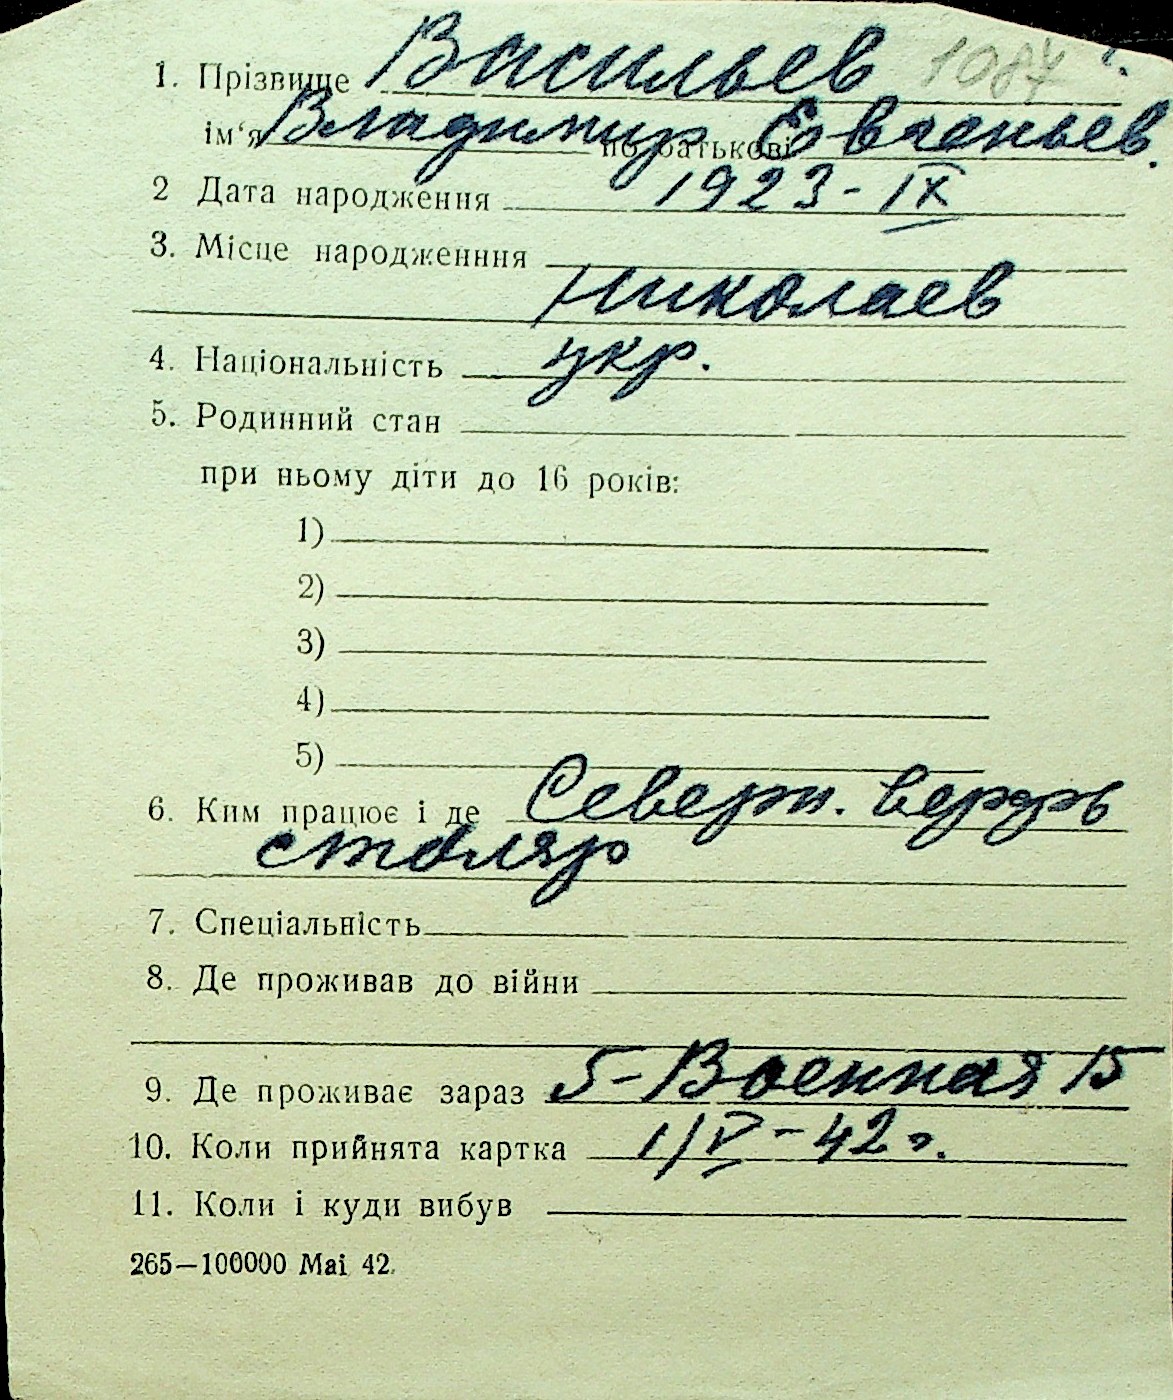 1. Прізвище Васильев 1087
ім‘я Владимир по батькові Евгеньев.
2 Дата народження 1923-IX
3. Місце народженння
Николаев
4. Національність укр.
5. Родинний стан
при ньому діти до 16 років:
1)
2)
3)
4)
5)
6. Ким працює і де Северн. верфь
столяр
7. Спеціальність
8. Де проживав до війни
9. Де проживає зараз 5-Военная 15
10. Коли прийнята картка 1/V-42 г.
11. Коли і куди вибув
265—100000 Mai 42.